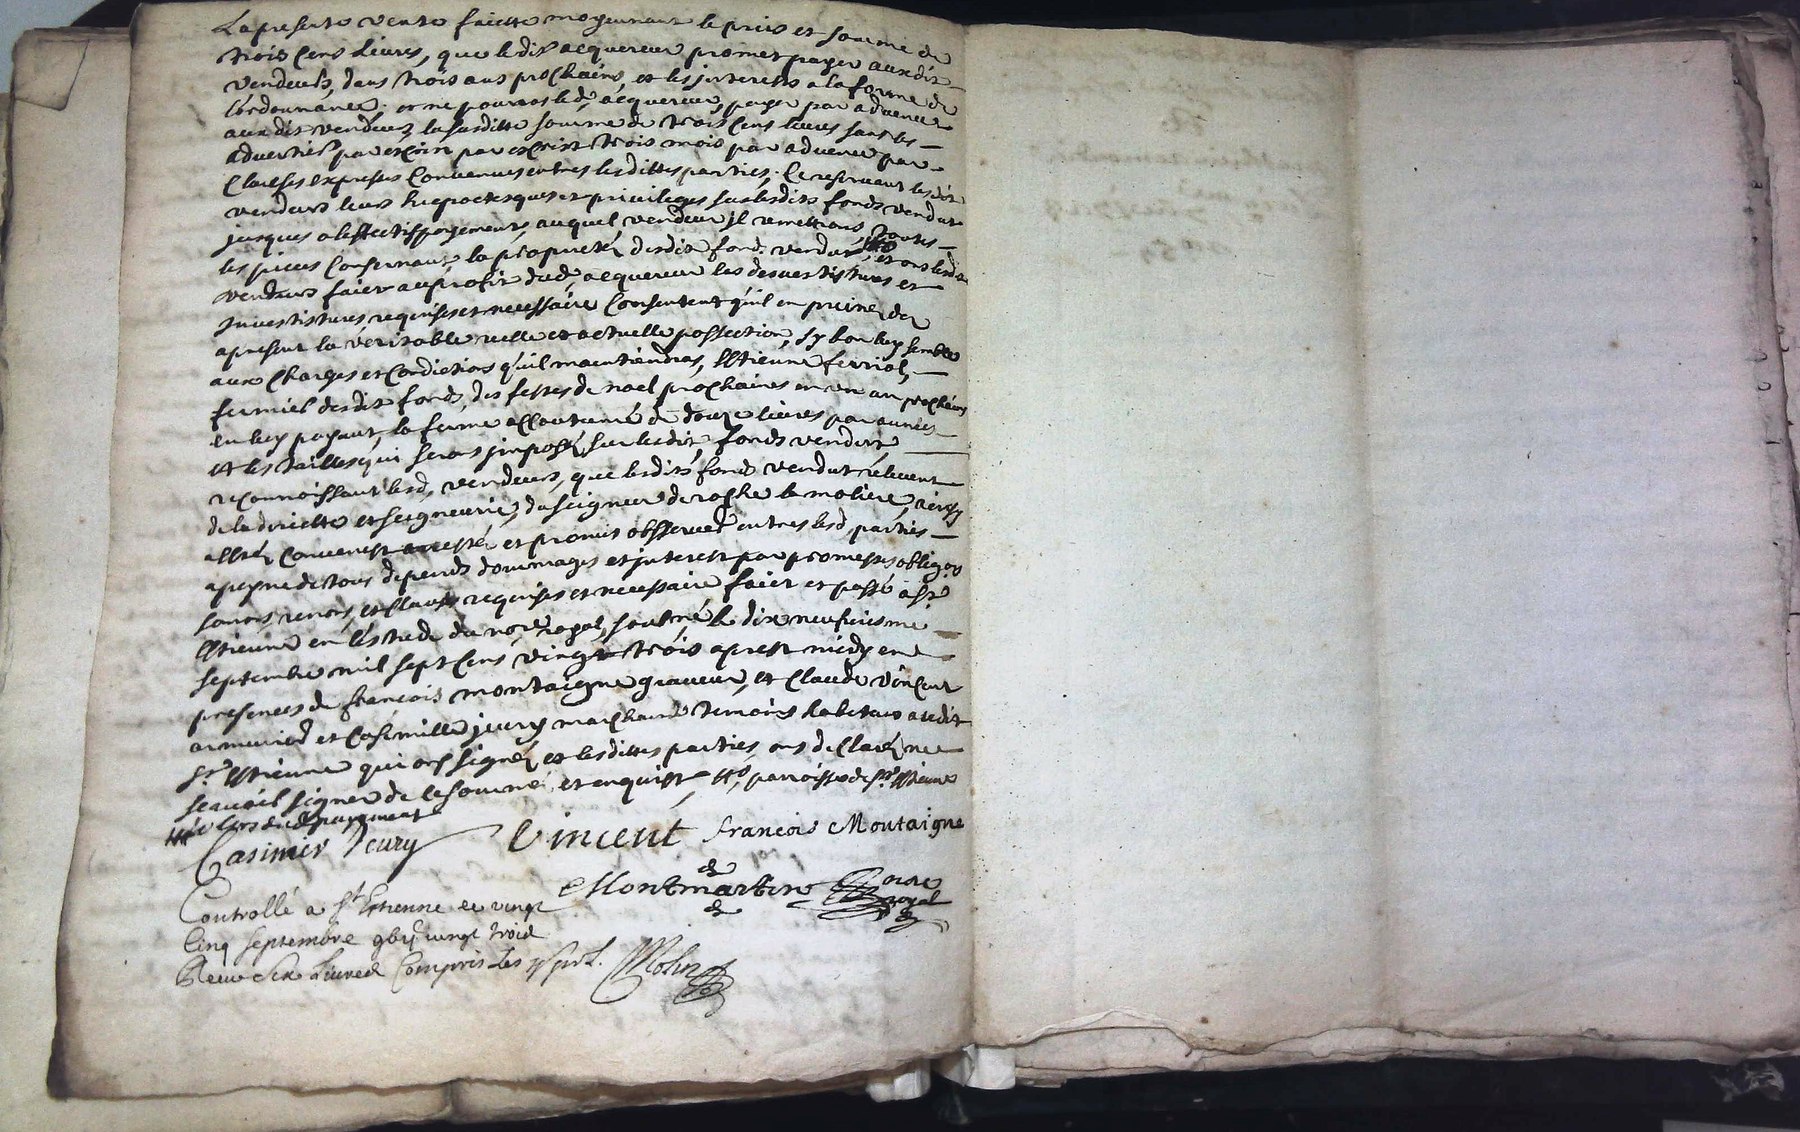 La presente vente faicte moyennant le prix et somme de
trois cens livres, que ledit acquereur promet payer auxdit
vendeurs, dans trois ans prochains, et les jnterests a la forme de
lordonnance. et ne pourras led. acquereur, payer par advence
aux dit vendeurs la susditte somme de trois cens livres sans les
advertir par escrit trois mois par advence par
Clauses expresses Convenues entres lesdittes parties. Ce reservant lesdit
vendeurs leurs hipoctesques et privileges sur lesdits fonds vendut
jusques a leffectif payement, auquel vendeur jl remettrons toutes
les pieces Consernant la proprieté desdit fond. vendut, et ons lesdit
vendeurs faict au profit dud. acquereur les desvestistures et
Jnvestistures requises et necessaire Consentent quil en prine des
apresent la veritable reelle et actuelle possection, sy bon luy semble
aux Charges et Condictions quil maintiendras, Estienne ferriol,
fermier desdit fonds, des festes de noel prochaines en un an prochains
en luy payant, la ferme accoutumé de douze livres par année
et les tailles qui seront jmposé sur lesdit fonds vendut
reconnoissant lesd. vendeurs, que lesdits fonds vendut relevent
de la directte et seigneurie, du seigneur de roche la moliere, ainsy
a esté Convenus arresté et promis observer entres lesd. parties
a peyne de tous depends dommages et jnterest par promesses obligaons
soumons renons, et Clauses requises et necessaire faict et passé a St
Estienne en lestude du nore royal, soubné le dix neufvieisme
septembre mil sept cens vingt trois apres midy en
presences de francois montaigne graveur, et Claude vincent
armurier et Casimille jeury marchand temoins habitans audit
St Estienne qui ont signé et lesdittes parties, ons declaré ne
scavoir signer de ce sommé, et enquist, paroisse de St Estienne
lors dud. payement
Casimir Jeury Vincent francois Montaigne
Montmartin nore
royal
Controllé a St Estienne le vingt
Cinq septembre vingt trois
Receu six Livres Compris Les Molin